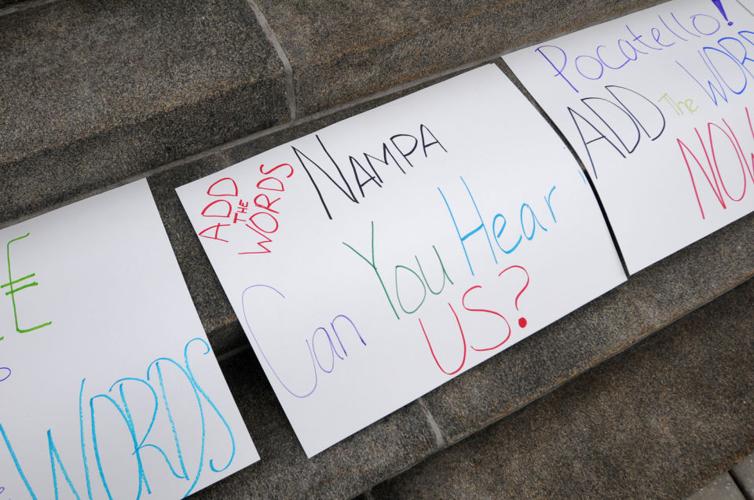 WORDS
ADD
THE
WORDS
NAMPA
Can You Hear
US?
Pocatello!
ADD The WORD
NOW